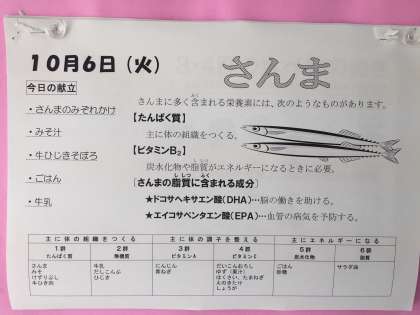 10月6日（火）
さんま
今日の献立
・さんまのみぞれかけ
・みそ汁
・牛ひじきそぼろ
・ごはん
・牛乳
さんまに多く含まれる栄養素には、次のようなものがあります。
【たんぱく質】
主に体の組織をつくる。
【ビタミンB₂】
炭水化物や脂質がエネルギーになるときに必要。
【さんまの脂質に含まれる成分】
★ドコサヘキサエン酸（DHA）…脳の働きを助ける。
★エイコサペンタエン酸（EPA）…血管の病気を予防する。
主に体の組織をつくる 主に体の調子を整える 主にエネルギーになる
1群 2群 3群 4群 5群 6群
たんぱく質 無機質 ビタミンA ビタミンC 炭水化物 脂質
さんま 牛乳 にんじん だいこんおろし ごはん サラダ油
みそ だしこんぶ 青ねぎ ゆず（果汁） 砂糖
けずりぶし ひじき はくさい、たまねぎ
牛ひき肉 えのきたけ
しょうが